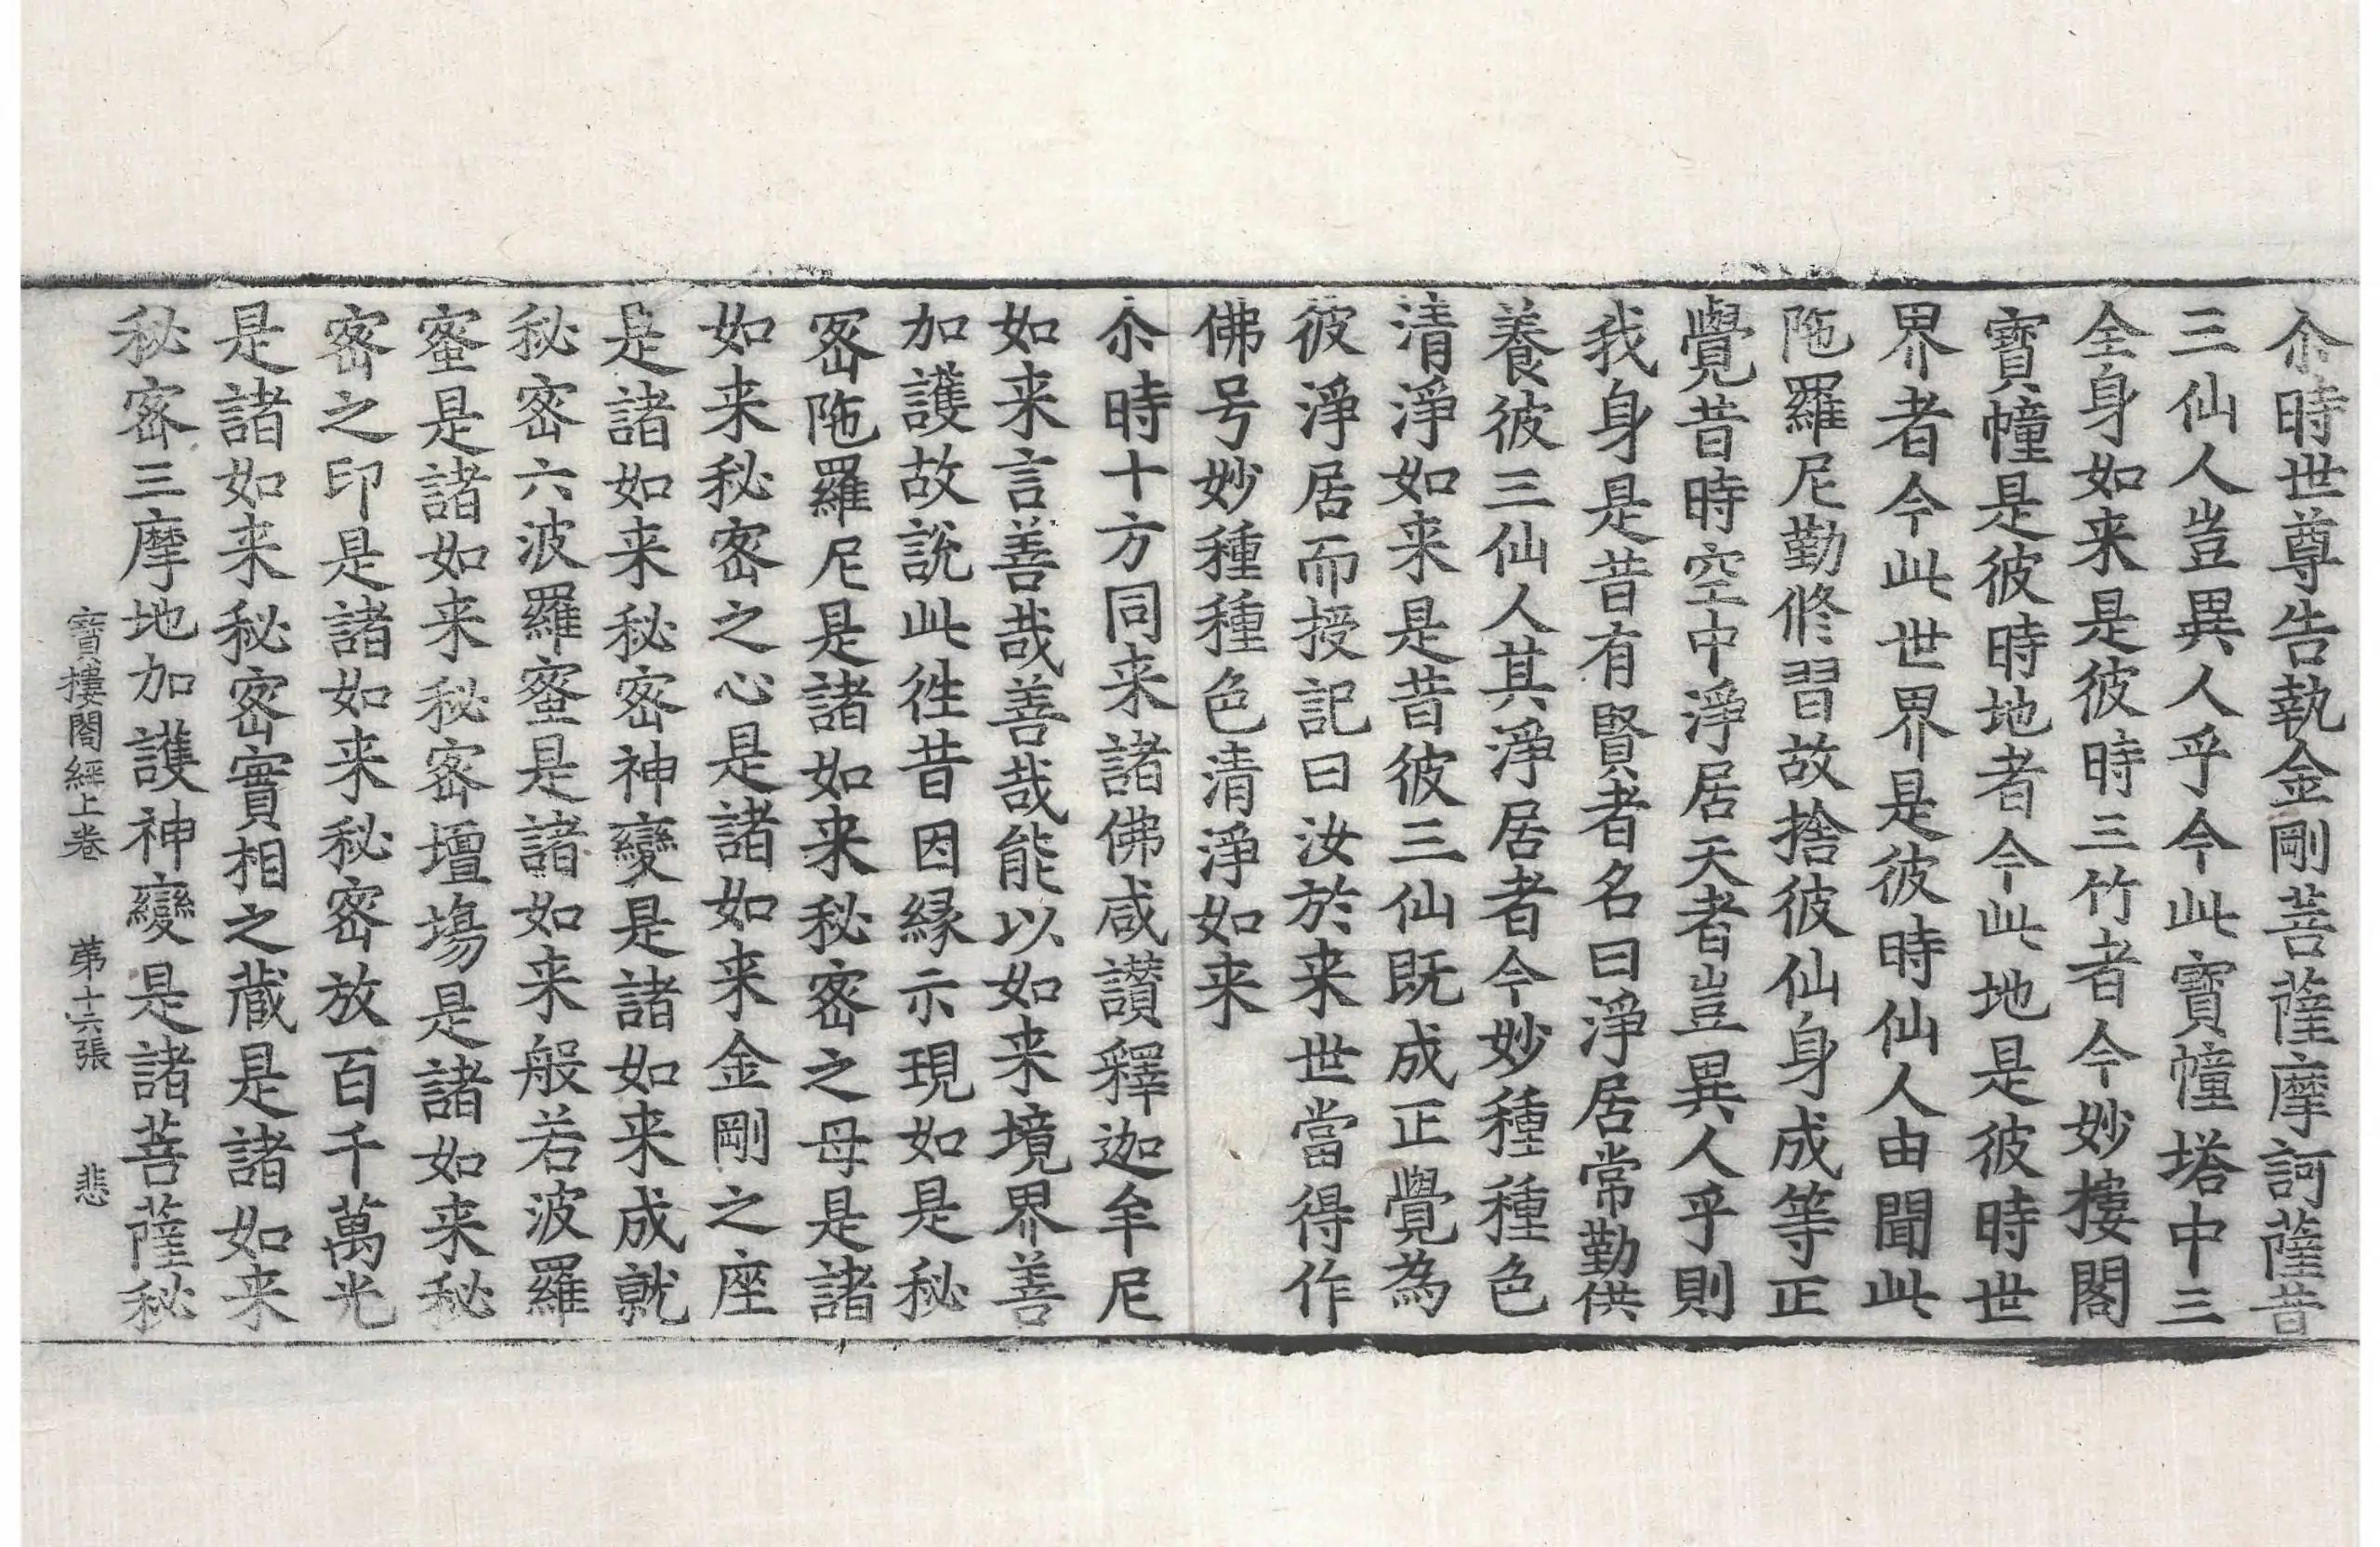 尒時世尊告執金剛菩薩摩訶薩昔
三仙人豈異人乎今此寳幢塔中三
全身如来是彼時三竹者今妙樓閣
寳幢是彼時地者今此地是彼時世
界者今此世界是彼時仙人由聞此
陁羅尼勤修習故捨彼仙身成等正
覺昔時空中淨居天者豈異人乎則
我身是昔有賢者名曰淨居常勤供
養彼三仙人其淨居者今妙種種色
清淨如来是昔彼三仙既成正覺為
彼淨居而授記曰汝於来世當得作
佛号妙種種色清淨如来
尒時十方同来諸佛咸讃釋迦牟尼
如来言善哉善哉能以如来境界善
加護故說此徃昔因縁示現如是秘
密陁羅尼是諸如来秘密之母是諸
如来秘密之心是諸如来金剛之座
是諸如来秘密神變是諸如来成就
秘密六波羅蜜是諸如来般若波羅
蜜是諸如来秘密壇場是諸如来秘
密之印是諸如来秘密放百千萬光
是諸如来秘密實相之藏是諸如来
秘密三摩地加護神變是諸菩薩秘
寳樓閣經上卷 苐十六張 悲